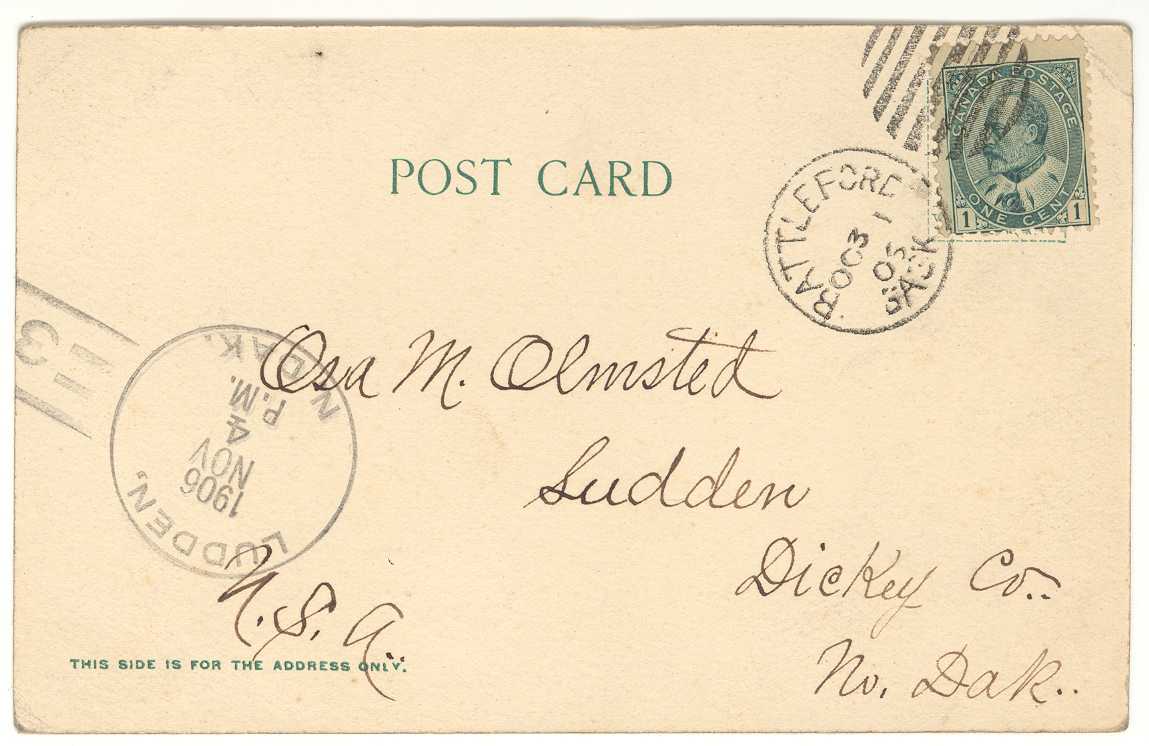 CANADA POSTAGE
ONE CENT
1 1
POST CARD
BATTLEFORD
OC 31
SASK
Osa M. Olmsted
Ludden
Dickey Co..
No. Dak..
U.S.A..
LUDDEN,
N. DAK.
NOV
4
P.M.
1906
3
THIS SIDE IS FOR THE ADDRESS ONLY.